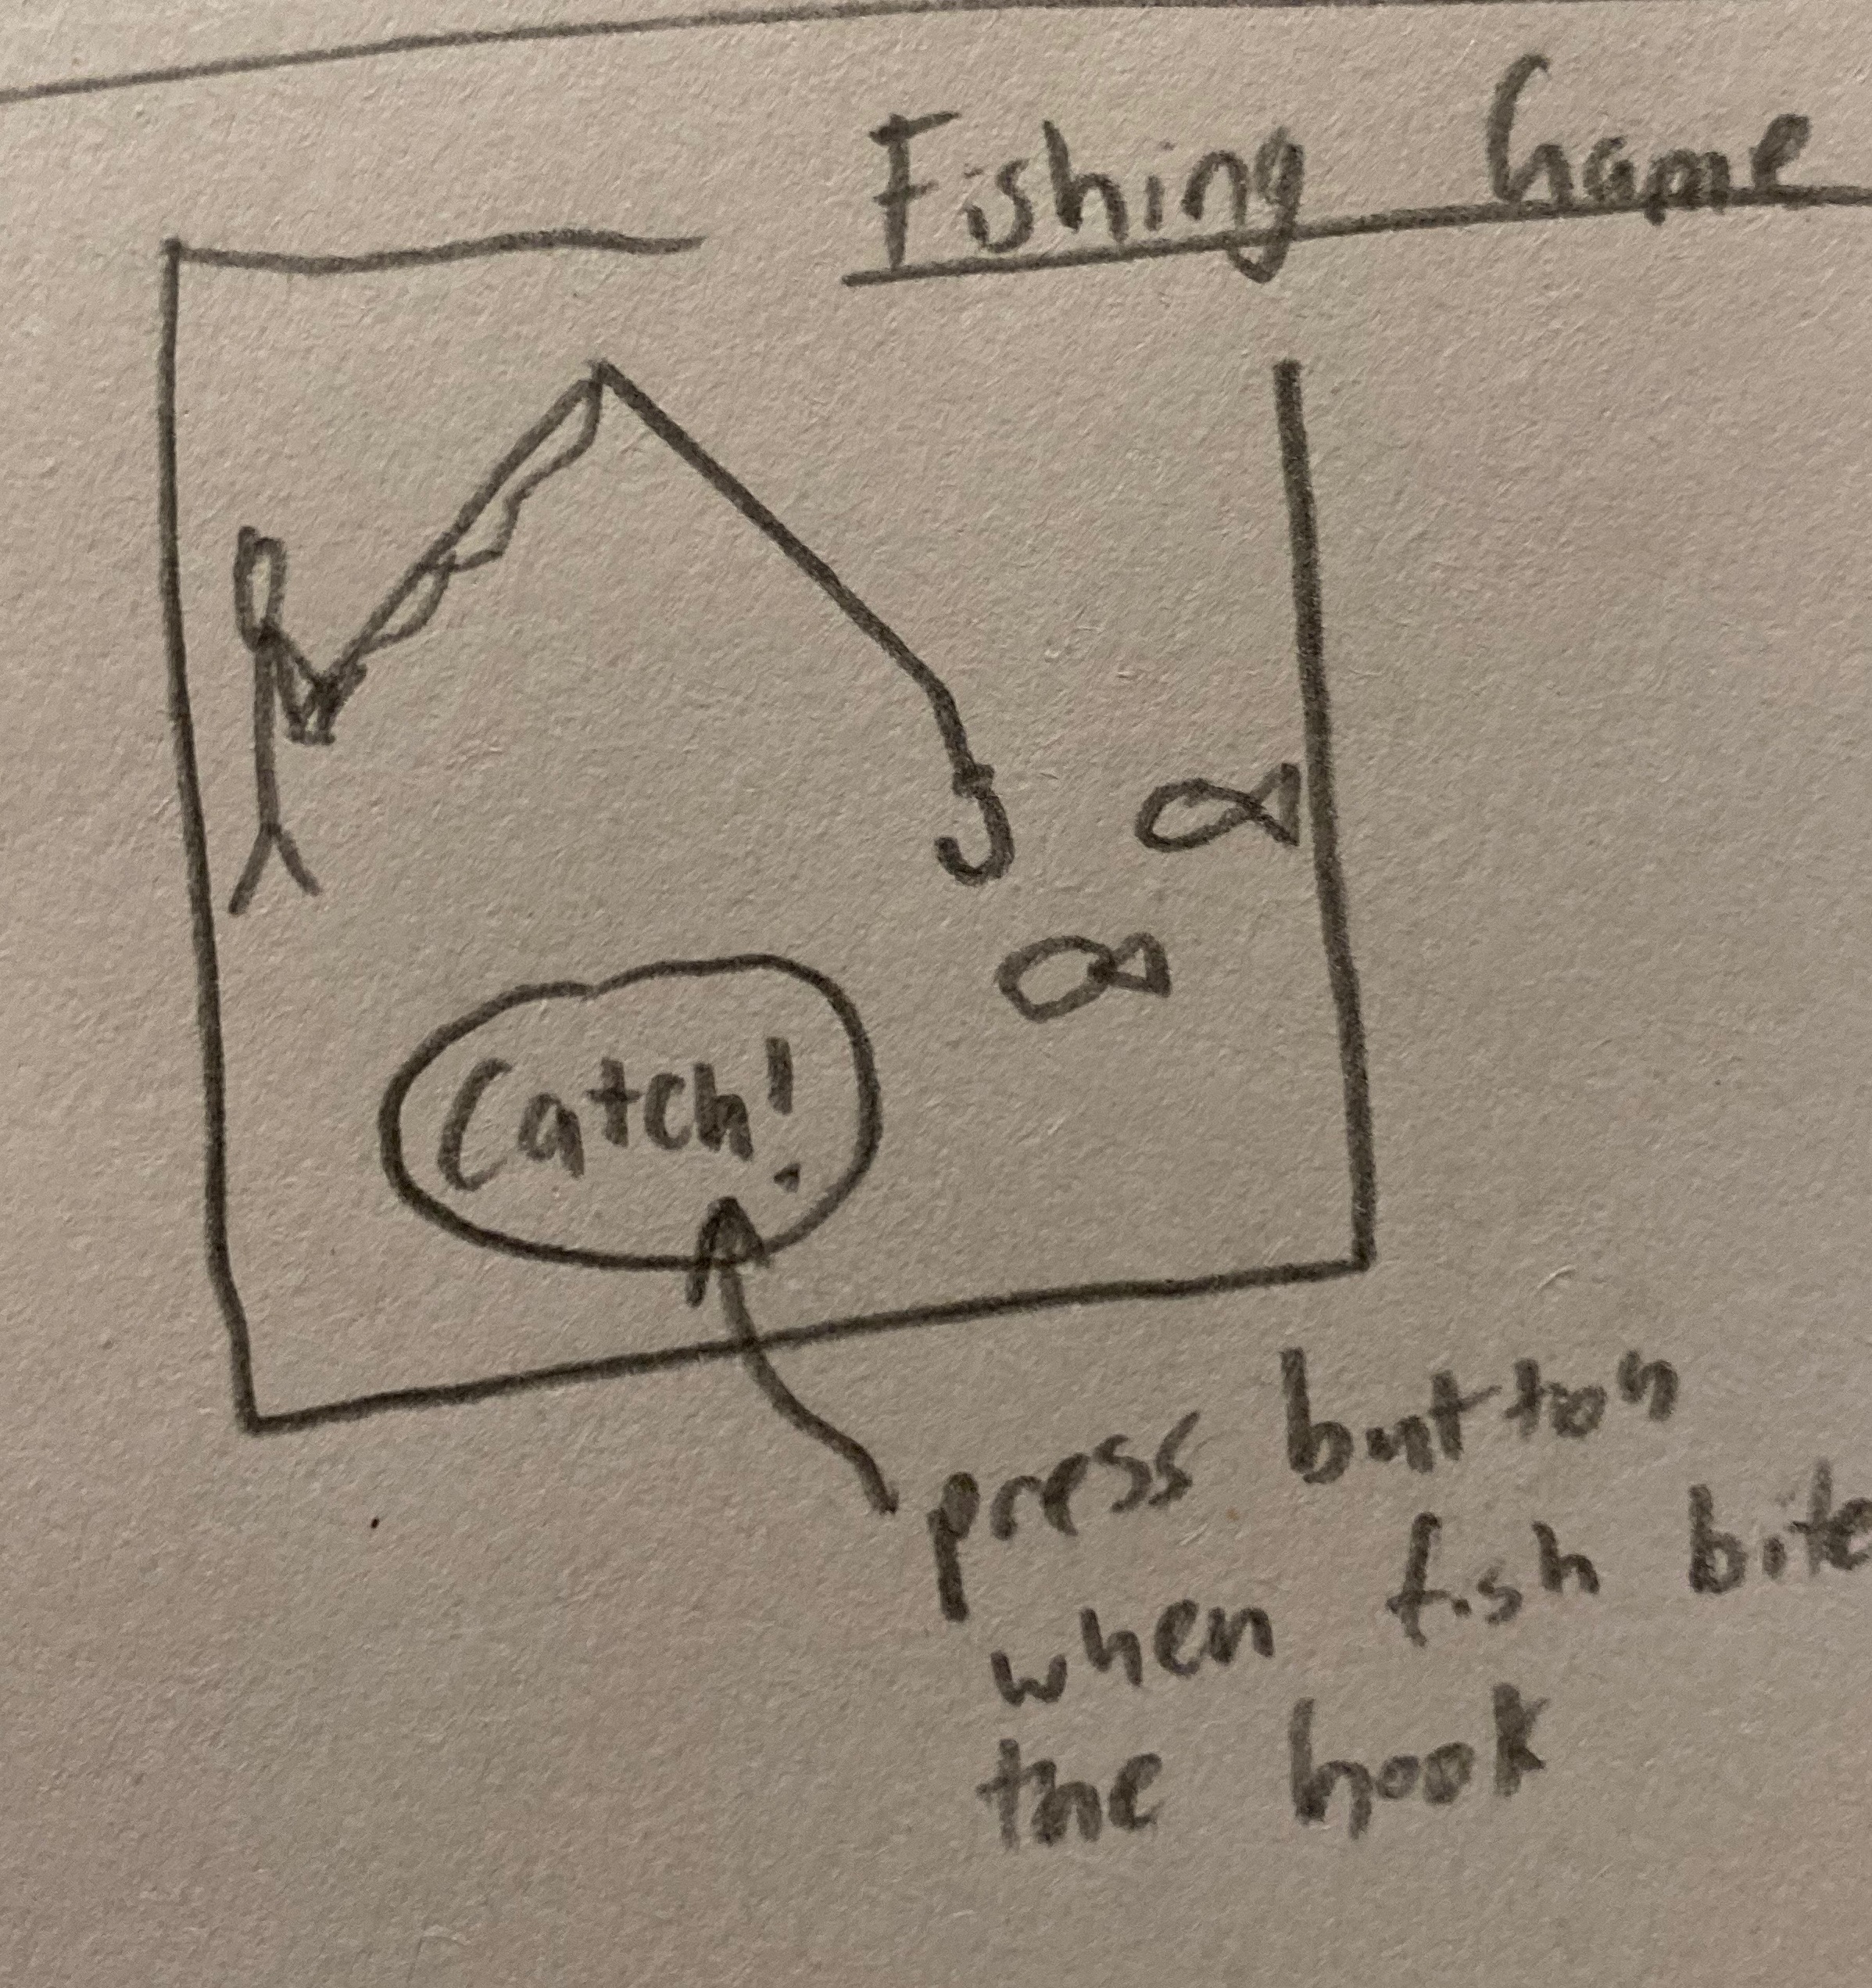 Fishing Game
Catch!
press button
when fish bite
the hook